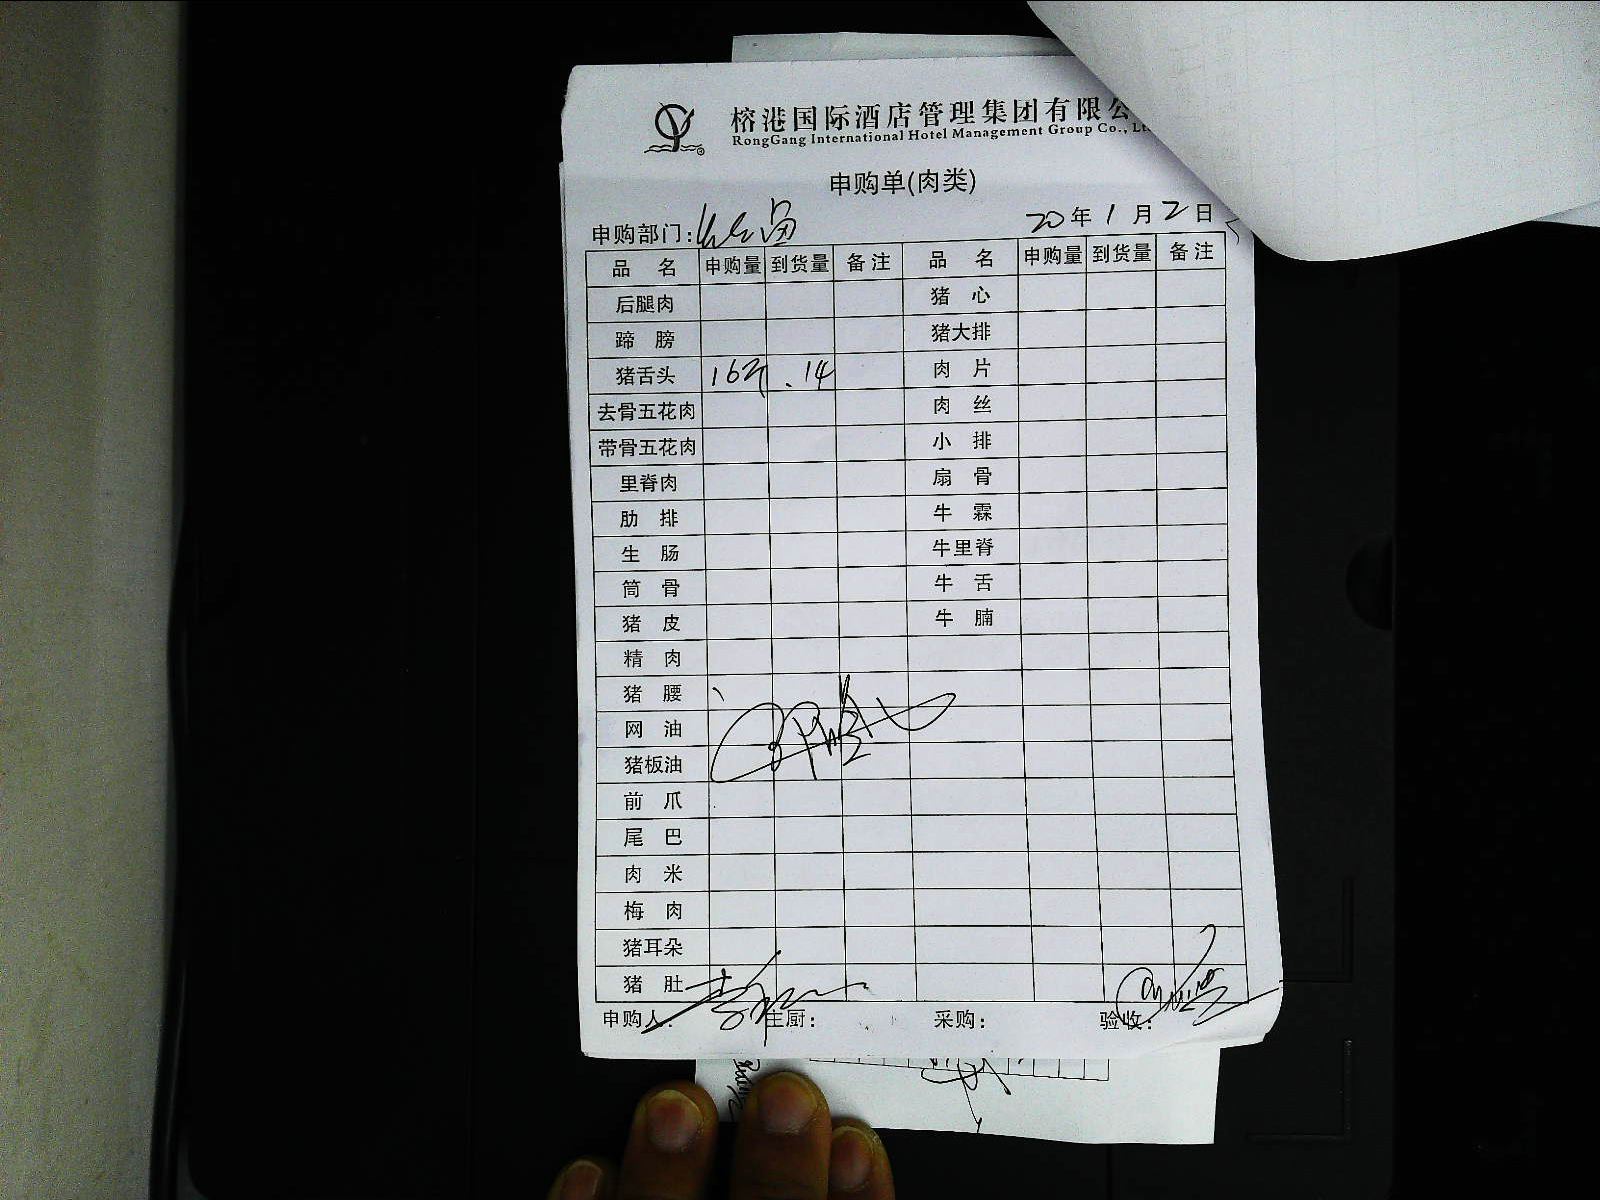 榕港国际酒店管理集团有限公
RongGang International Hotel Management Group Co., Lt
申购单(肉类)
申购部门: 20年1月2日
品名 申购量 到货量 备注 品名 申购量 到货量 备注
后腿肉 猪心
蹄膀 猪大排
猪舌头 16斤 .14 肉片
去骨五花肉 肉丝
带骨五花肉 小排
里脊肉 扇骨
肋排 牛霖
生肠 牛里脊
筒骨 牛舌
猪皮 牛腩
精肉
猪腰
网油
猪板油
前爪
尾巴
肉米
梅肉
猪耳朵
猪肚
申购人: 主厨: 采购: 验收: